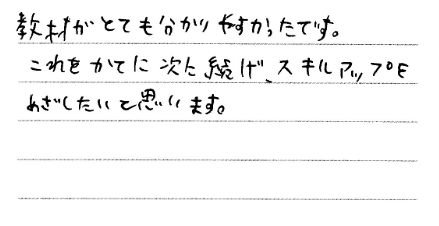 教材がとても分かりやすかったです。
これをかてに次に続げ、スキルアップを
めざしたいと思います。